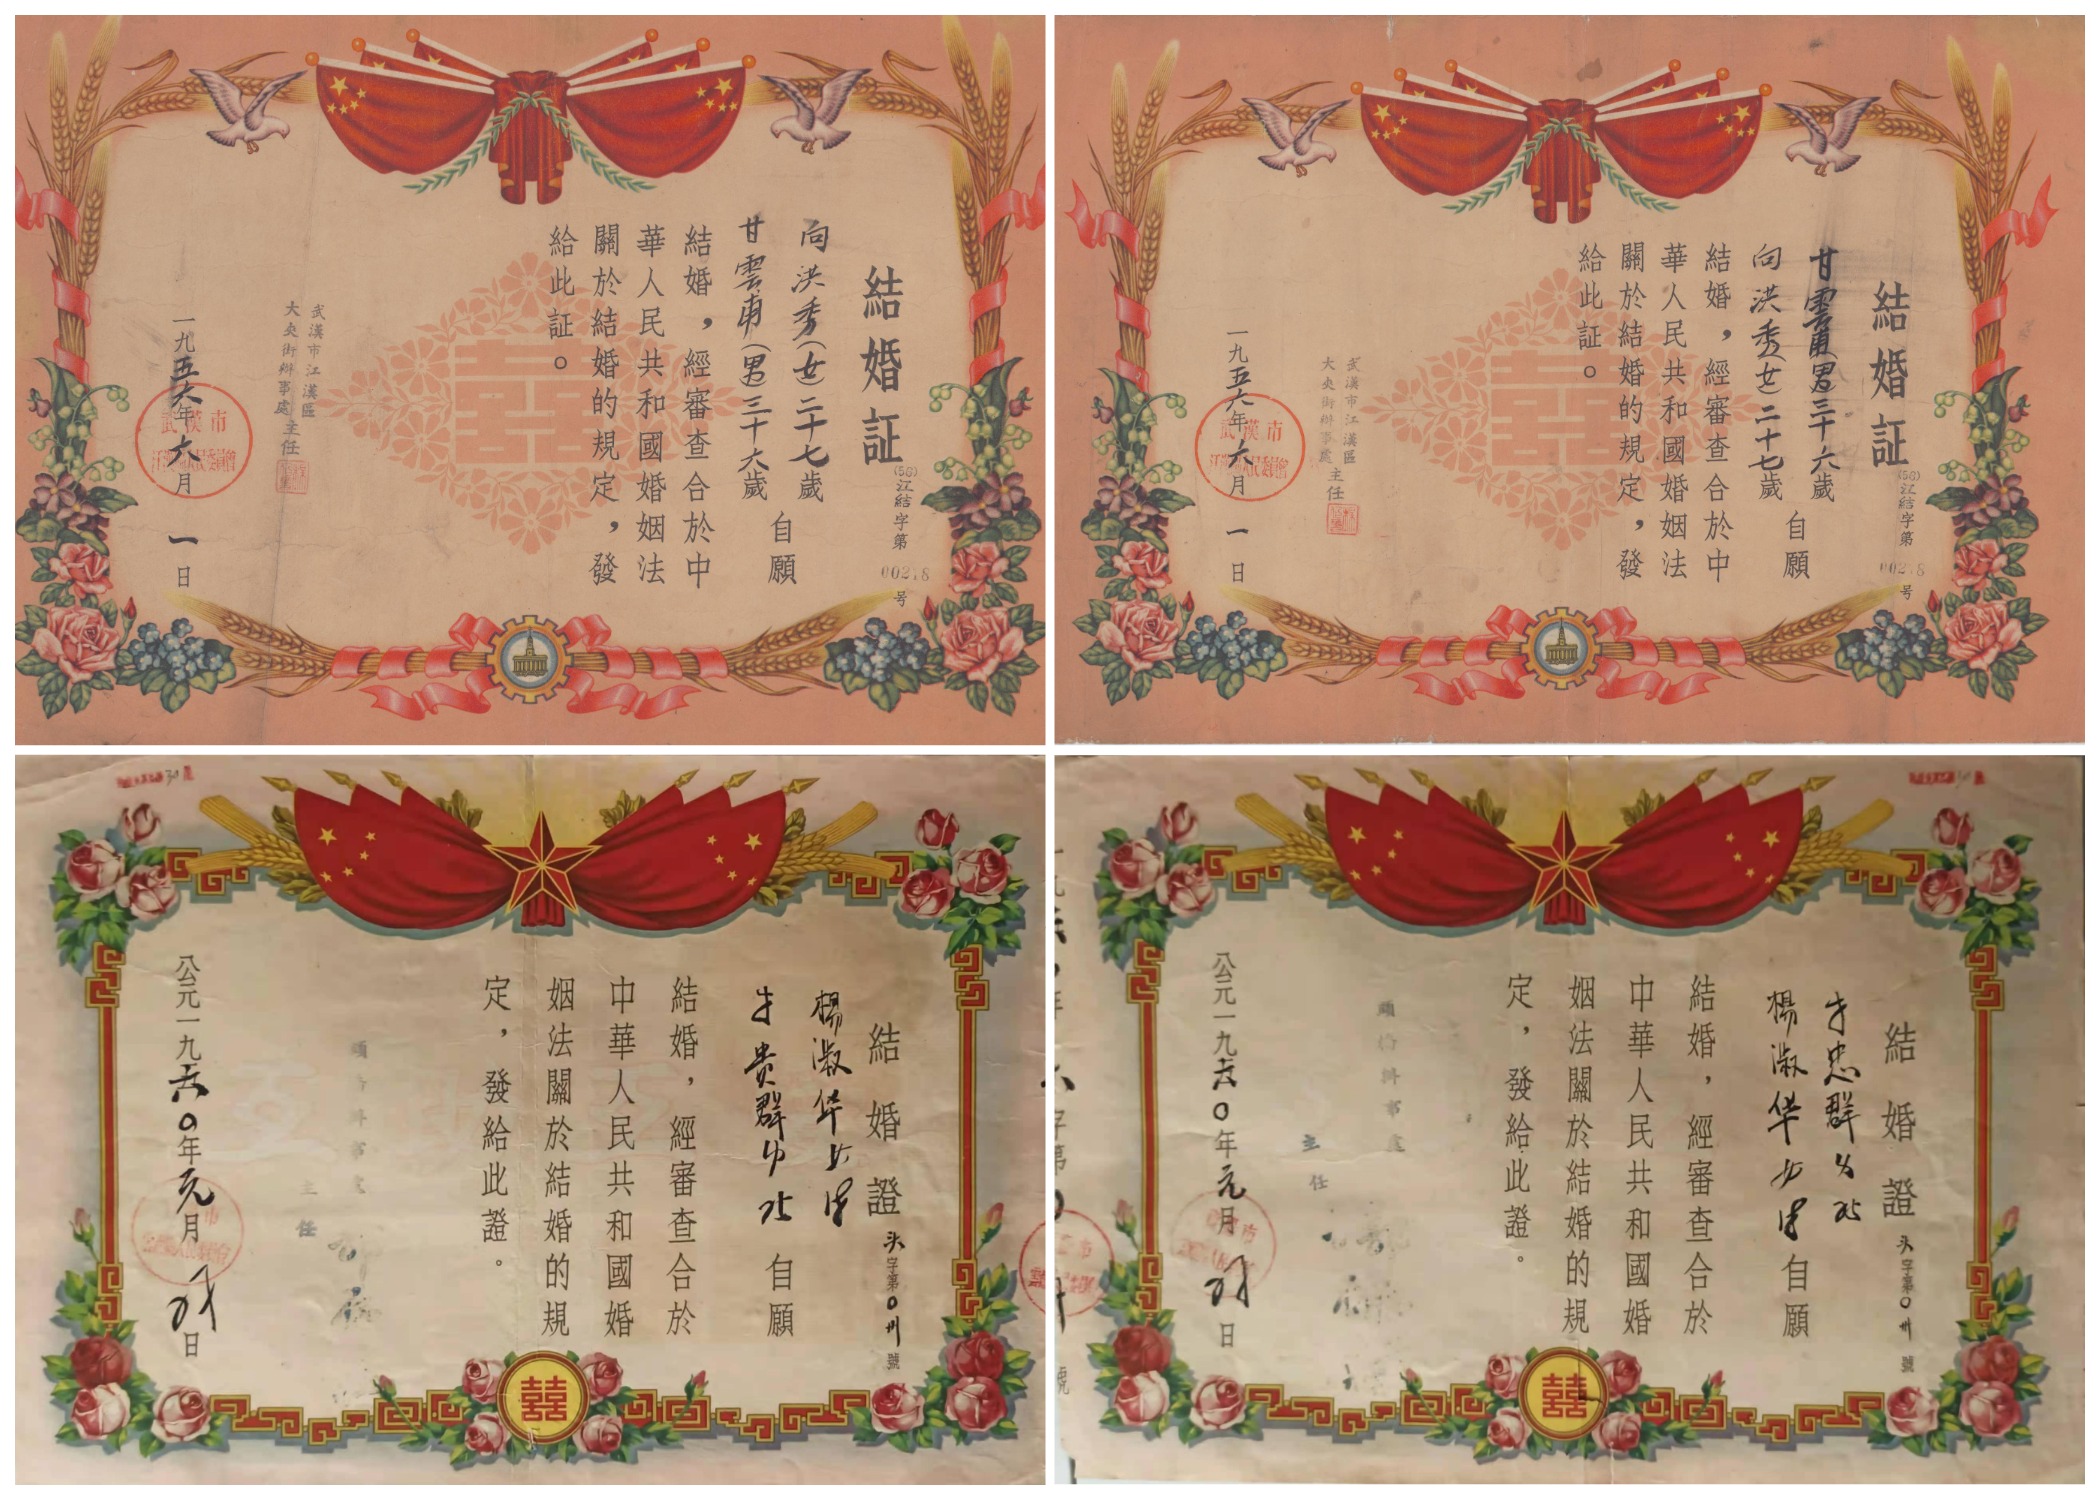 結婚証
(56)江結字第00278号
向洪秀(女)二十七歲
甘雲甫(男)三十六歲
自願
結婚，經審查合於中
華人民共和國婚姻法
關於結婚的規定，發
給此証。
武漢市江漢區
大夾街辦事處主任
一九五六年六月一日
武漢市
結婚証
(56)江結字第00278号
甘雲甫(男)三十六歲
向洪秀(女)二十七歲
自願
結婚，經審查合於中
華人民共和國婚姻法
關於結婚的規定，發
給此証。
武漢市江漢區
大夾街辦事處主任
一九五六年六月一日
武漢市
結婚證
头字第0卅號
楊淑华女
貴群
自願
結婚，經審查合於
中華人民共和國婚
姻法關於結婚的規
定，發給此證。
辦事處
主任
公元一九六〇年元月日
市
囍
結婚證
头字第0卅號
忠群
楊淑华女
自願
結婚，經審查合於
中華人民共和國婚
姻法關於結婚的規
定，發給此證。
辦事處
主任
公元一九六〇年元月日
市
囍